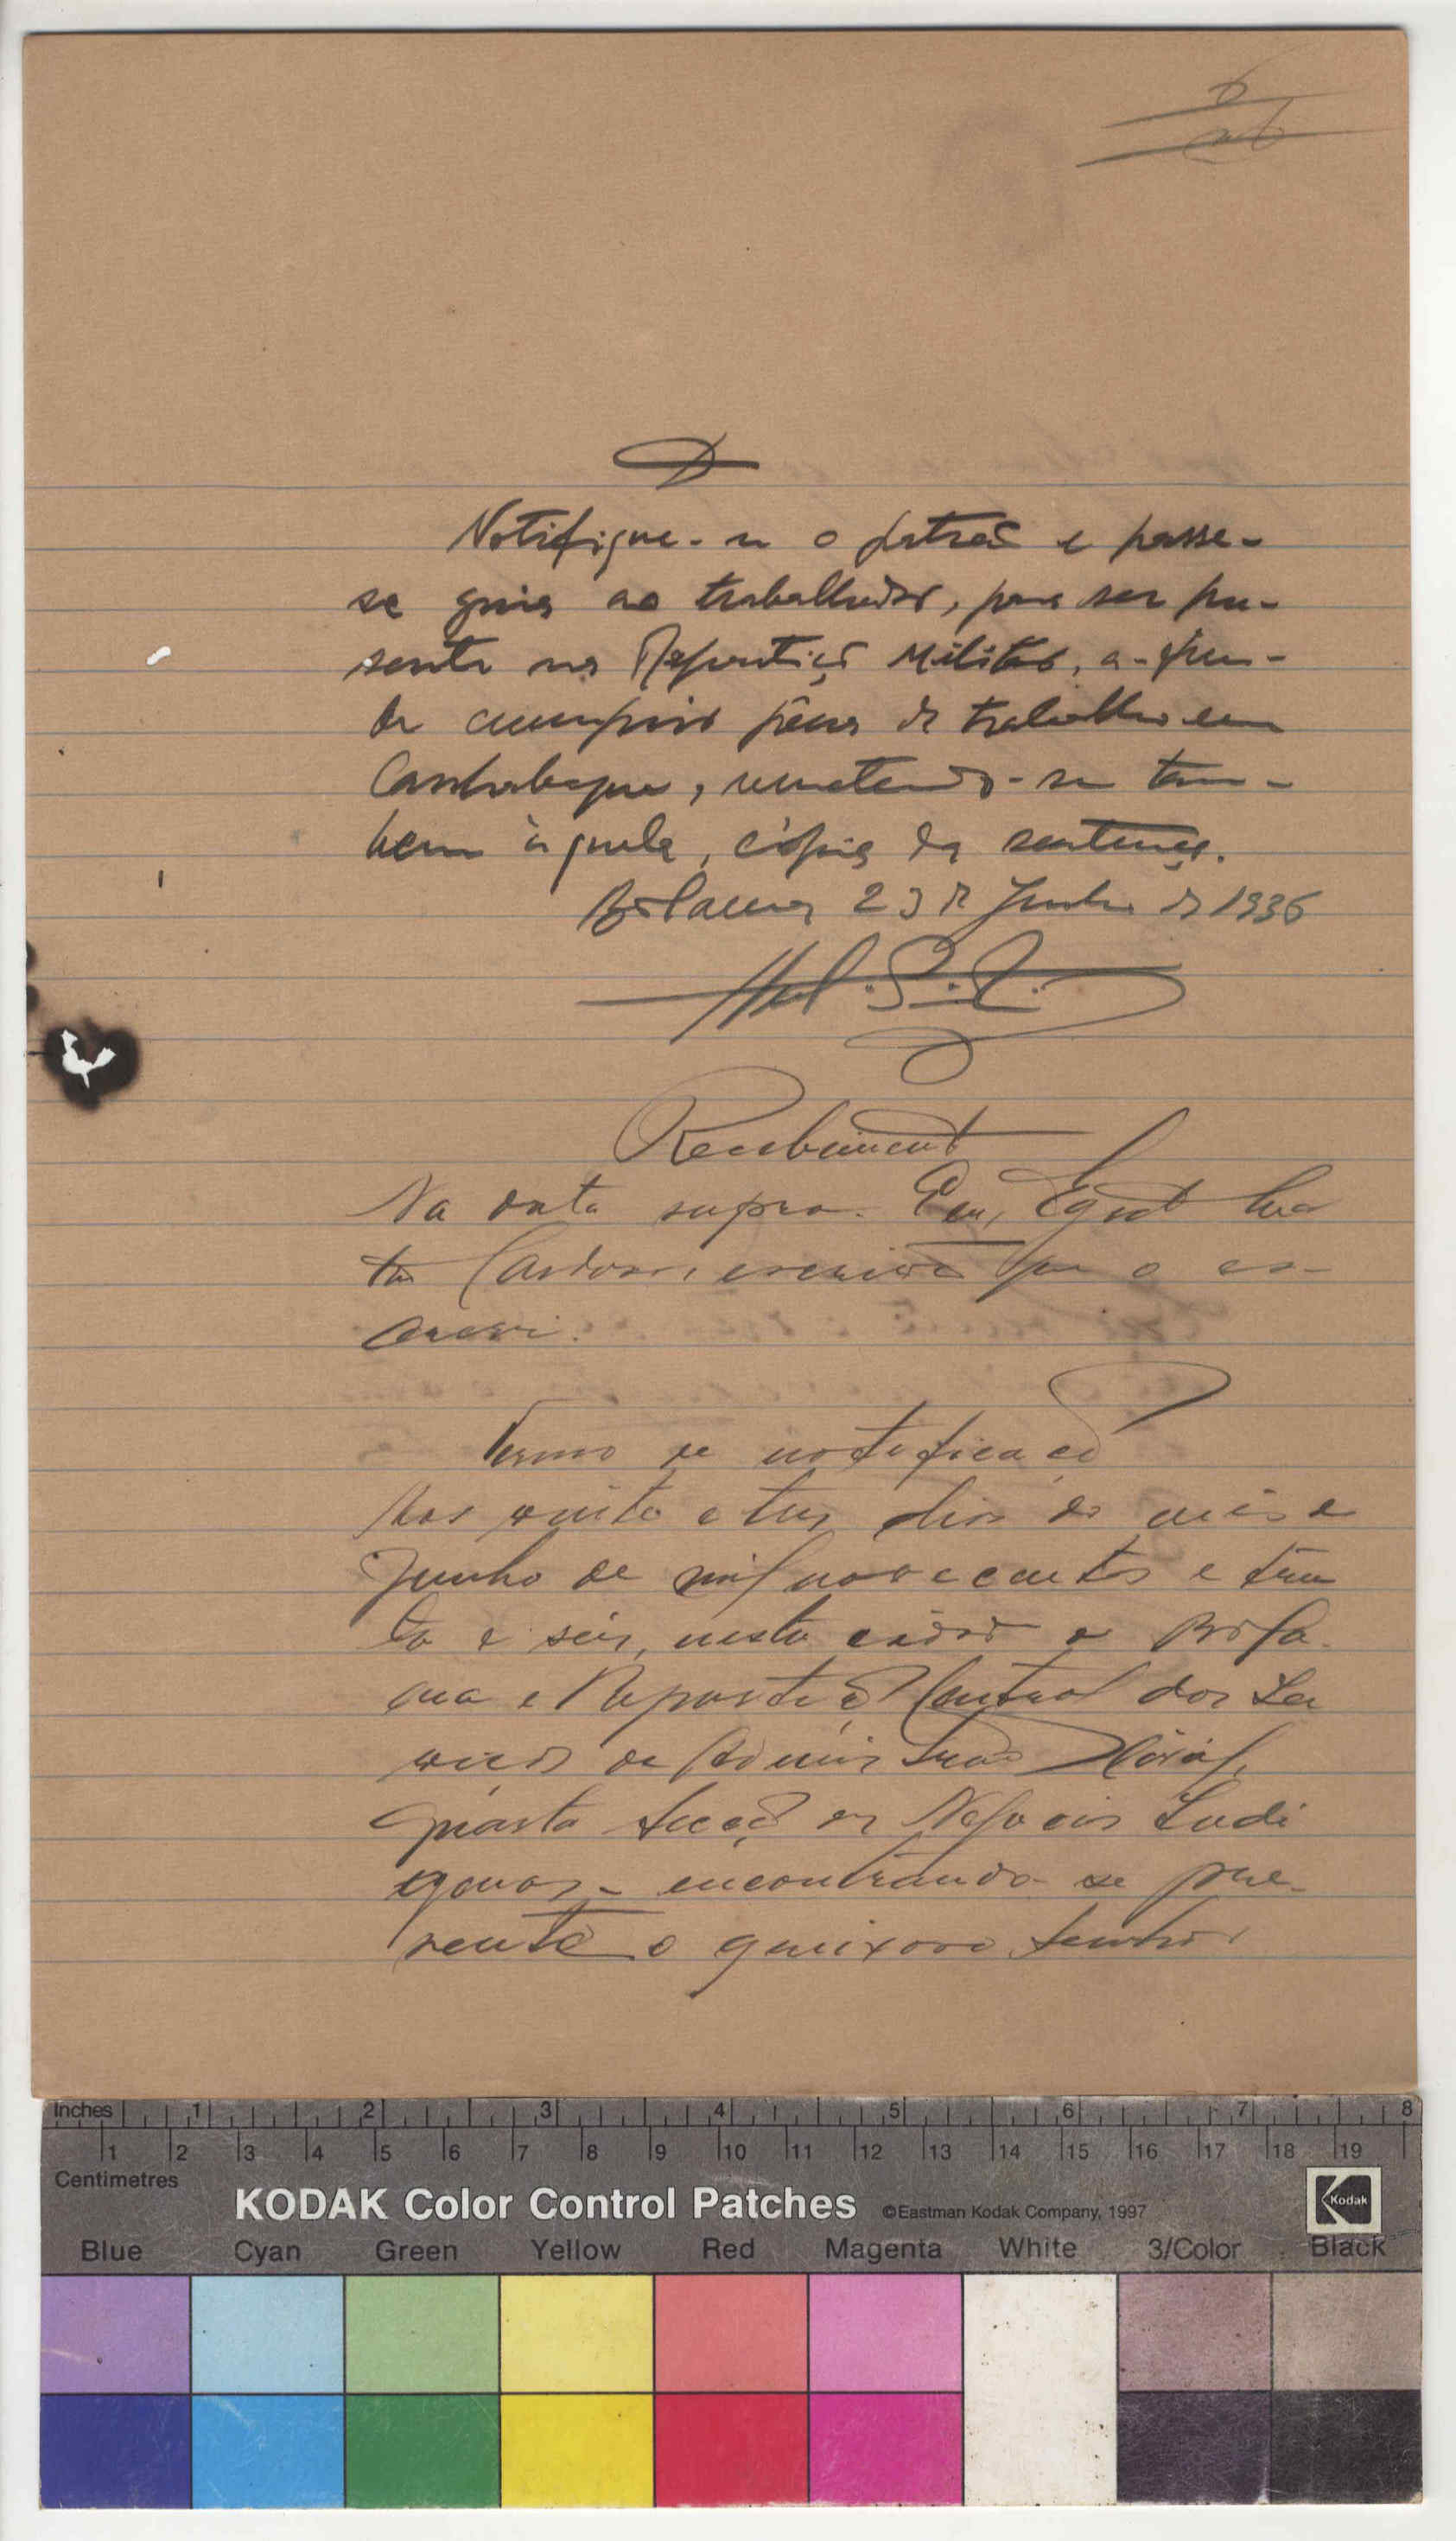 6
D
Notifique-se o patrão e passe-
se guia ao trabalhador, para ser pre-
sente na Repartição Militar, a-fim-
de cumprir pêna de trabalho em
Canhabaque, remetendo-se tam-
bem àquela, cópia da sentença.
Bolama, 23 de Junho de 1936
Recebimento
Na data supra. Eu,
Cardoso, escrivão que o es-
crevi.
Termo de notificação
Aos vinte e tres dias do mês de
Junho de mil novecentos e trin
ta e seis, nesta cidade de Bola-
ma e Repartição Central dos Ser
viços de Administração Civil,
quarta secção de Negocios Indi
genas, encontrando-se pre-
sente o queixoso senhor
Inches 1 2 3 4 5 6 7 8
1 2 3 4 5 6 7 8 9 10 11 12 13 14 15 16 17 18 19
Centimetres
KODAK Color Control Patches ©Eastman Kodak Company, 1997 Kodak
Blue Cyan Green Yellow Red Magenta White 3/Color Black